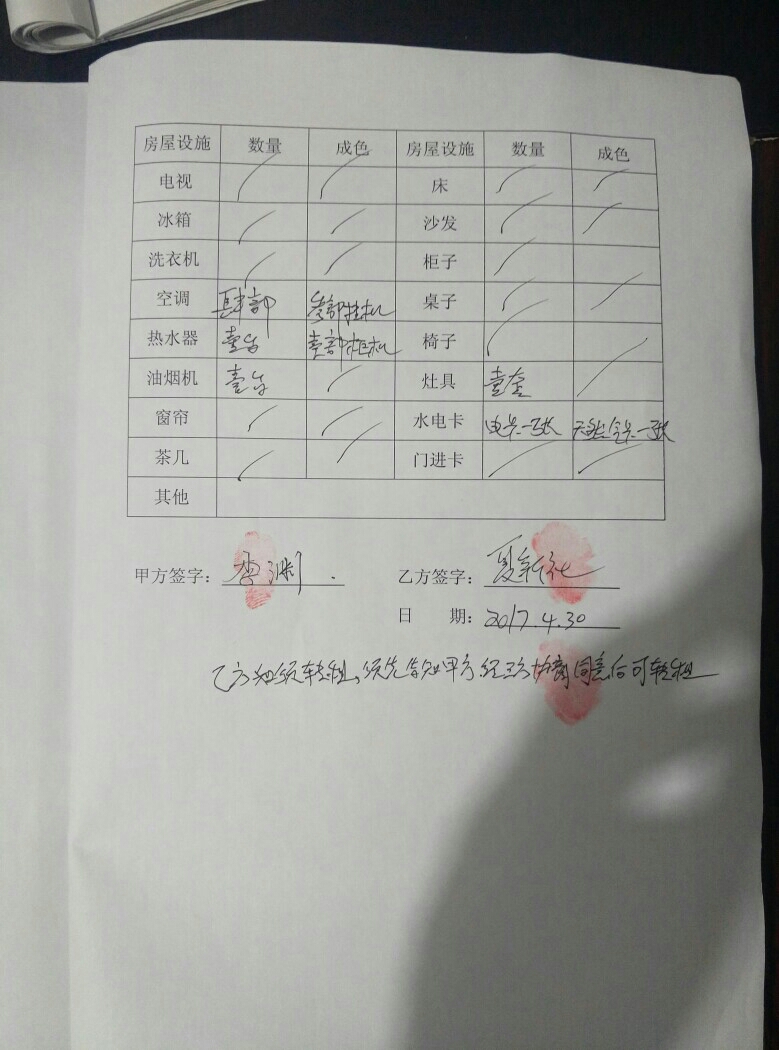 房屋设施 数量 成色 房屋设施 数量 成色
电视 床
冰箱 沙发
洗衣机 柜子
空调 肆部 叁部挂机 桌子
热水器 壹台 壹部柜机 椅子
油烟机 壹台 灶具 壹套
窗帘 水电卡 电卡一张 天然气卡一张
茶几 门进卡
其他
甲方签字：李渊 乙方签字：夏新社
日 期：2017.4.30
乙方如须转租，须先告知甲方，经双方协商同意后可转租